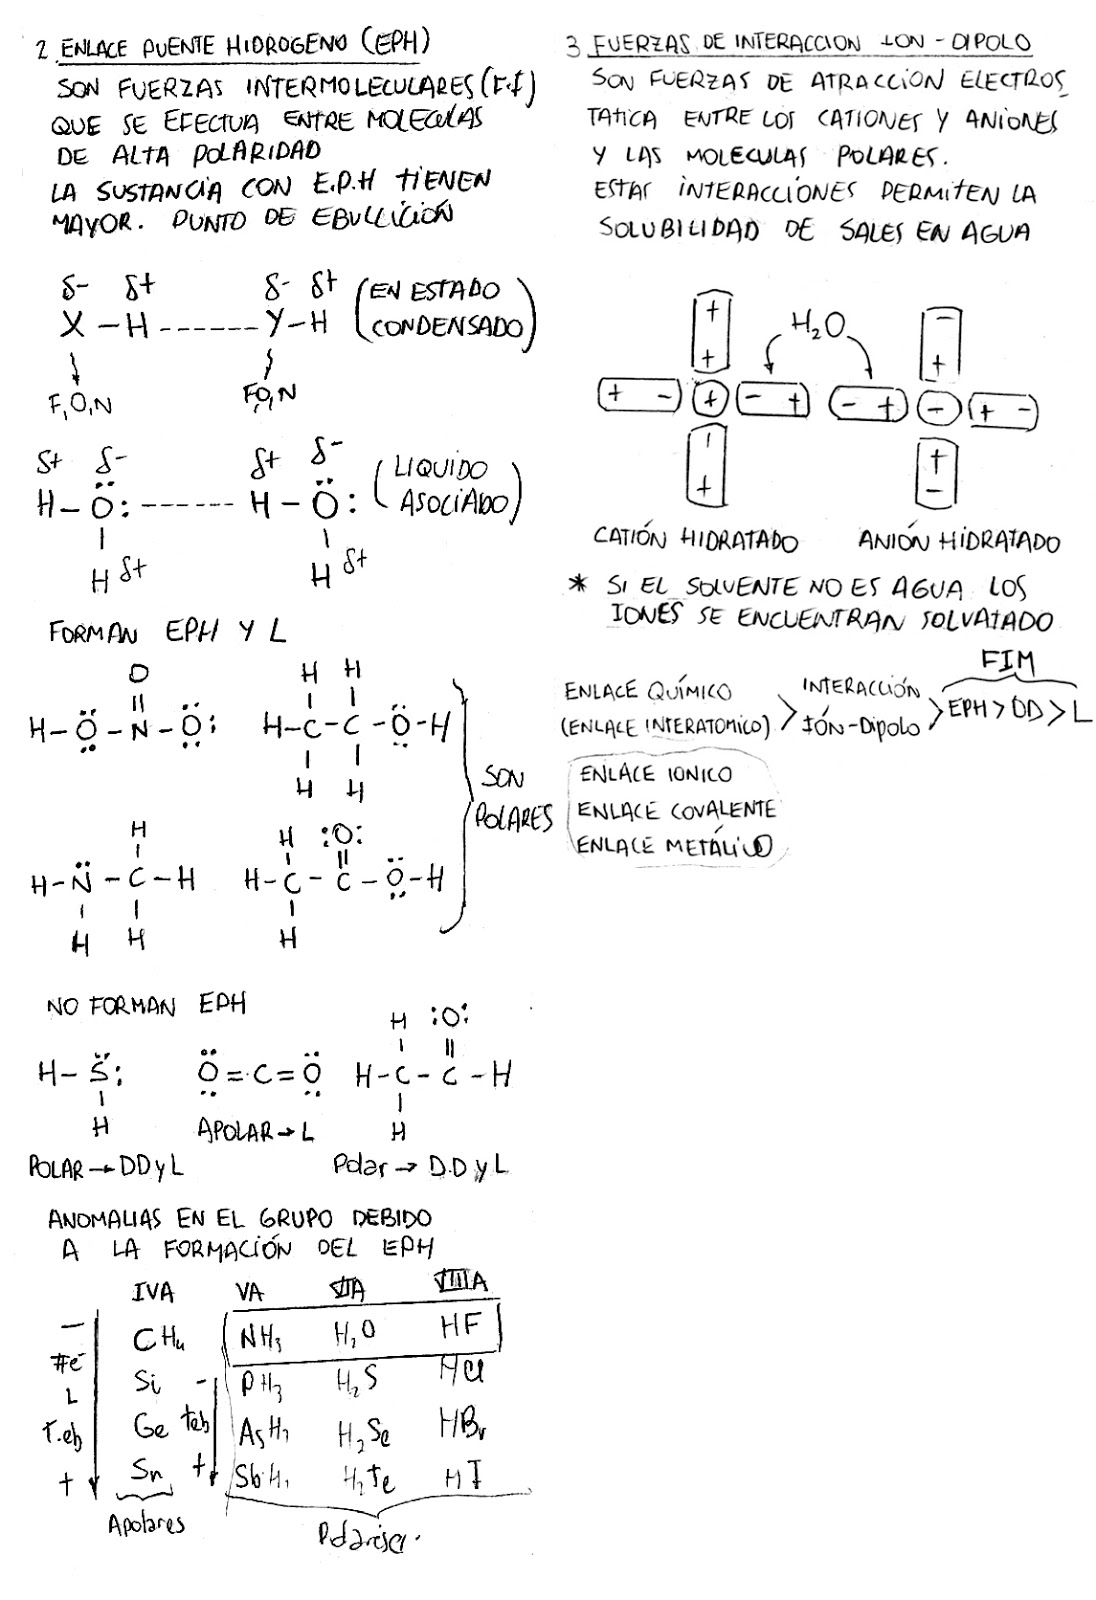 2 ENLACE PUENTE HIDROGENO (EPH)
SON FUERZAS INTERMOLECULARES (F.f)
QUE SE EFECTUA ENTRE MOLECULAS
DE ALTA POLARIDAD
LA SUSTANCIA CON E.P.H TIENEN
MAYOR. PUNTO DE EBULLICIÓN
δ- δ+ δ- δ+ (EN ESTADO
X - H ------ Y - H CONDENSADO)
F,O,N F,O,N
δ+ δ- δ+ δ- (LIQUIDO
H - Ö: ------ H - Ö: ASOCIADO)
H δ+ H δ+
FORMAN EPH Y L
O H H
H - Ö - N - Ö: H - C - C - Ö - H
H H
SON
POLARES
H H :O:
H - N̈ - C - H H - C - C - Ö - H
H H H
NO FORMAN EPH
H :O:
H - S̈: Ö = C = Ö H - C - C - H
H APOLAR → L H
POLAR → DD y L Polar → D.D y L
ANOMALIAS EN EL GRUPO DEBIDO
A LA FORMACIÓN DEL EPH
IVA VA VIIA VIIIA
- CH₄ NH₃ H₂O HF
#e⁻ Si - PH₃ H₂S HCl
L
T.eb Ge teb AsH₃ H₂Se HBr
+ Sn + SbH₃ H₂Te HI
Apolares
3 FUERZAS DE INTERACCION ION - DIPOLO
SON FUERZAS DE ATRACCION ELECTROS
TATICA ENTRE LOS CATIONES Y ANIONES
Y LAS MOLECULAS POLARES.
ESTAS INTERACCIONES PERMITEN LA
SOLUBILIDAD DE SALES EN AGUA
+ H₂O -
+ +
+ - + - + - + - + -
- +
+ -
CATIÓN HIDRATADO ANIÓN HIDRATADO
* SI EL SOLVENTE NO ES AGUA LOS
IONES SE ENCUENTRAN SOLVATADO
FIM
ENLACE QUÍMICO INTERACCIÓN
(ENLACE INTERATOMICO) > IÓN-Dipolo > EPH > DD > L
ENLACE IONICO
ENLACE COVALENTE
ENLACE METÁLICO